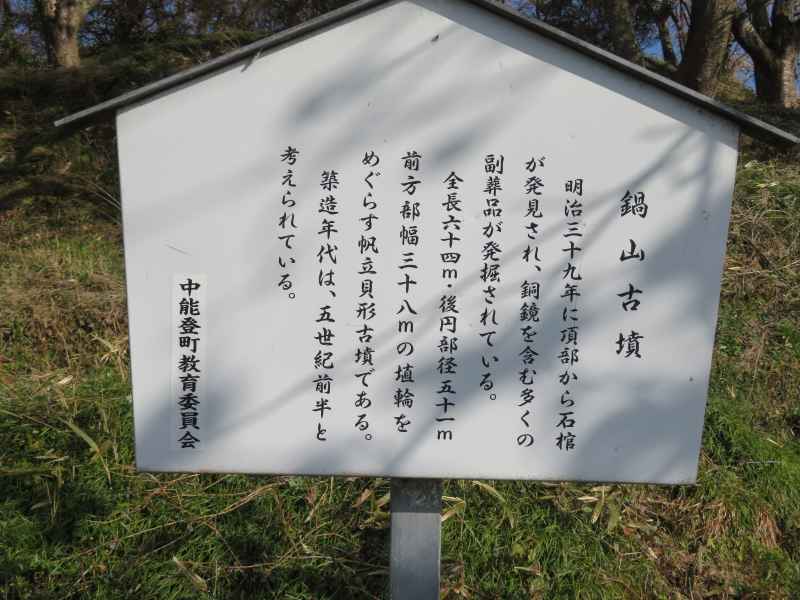 鍋山古墳
明治三十九年に頂部から石棺
が発見され、銅鏡を含む多くの
副葬品が発掘されている。
全長六十四m・後円部径五十一m
前方部幅三十八mの埴輪を
めぐらす帆立貝形古墳である。
築造年代は、五世紀前半と
考えられている。
中能登町教育委員会